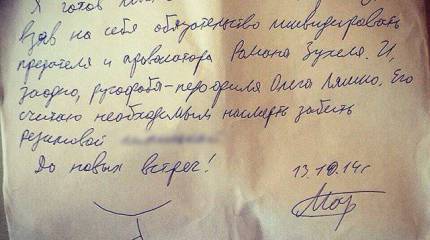 Я готов
взяв на себя обязательство ликвидировать
предателя и провокатора Романа Зухеля. И,
заодно, русофоба-педофила Олега Ляшко. Его
считаю необходимым насмерть забить
резиновой
До новых встреч!
13.10.14г